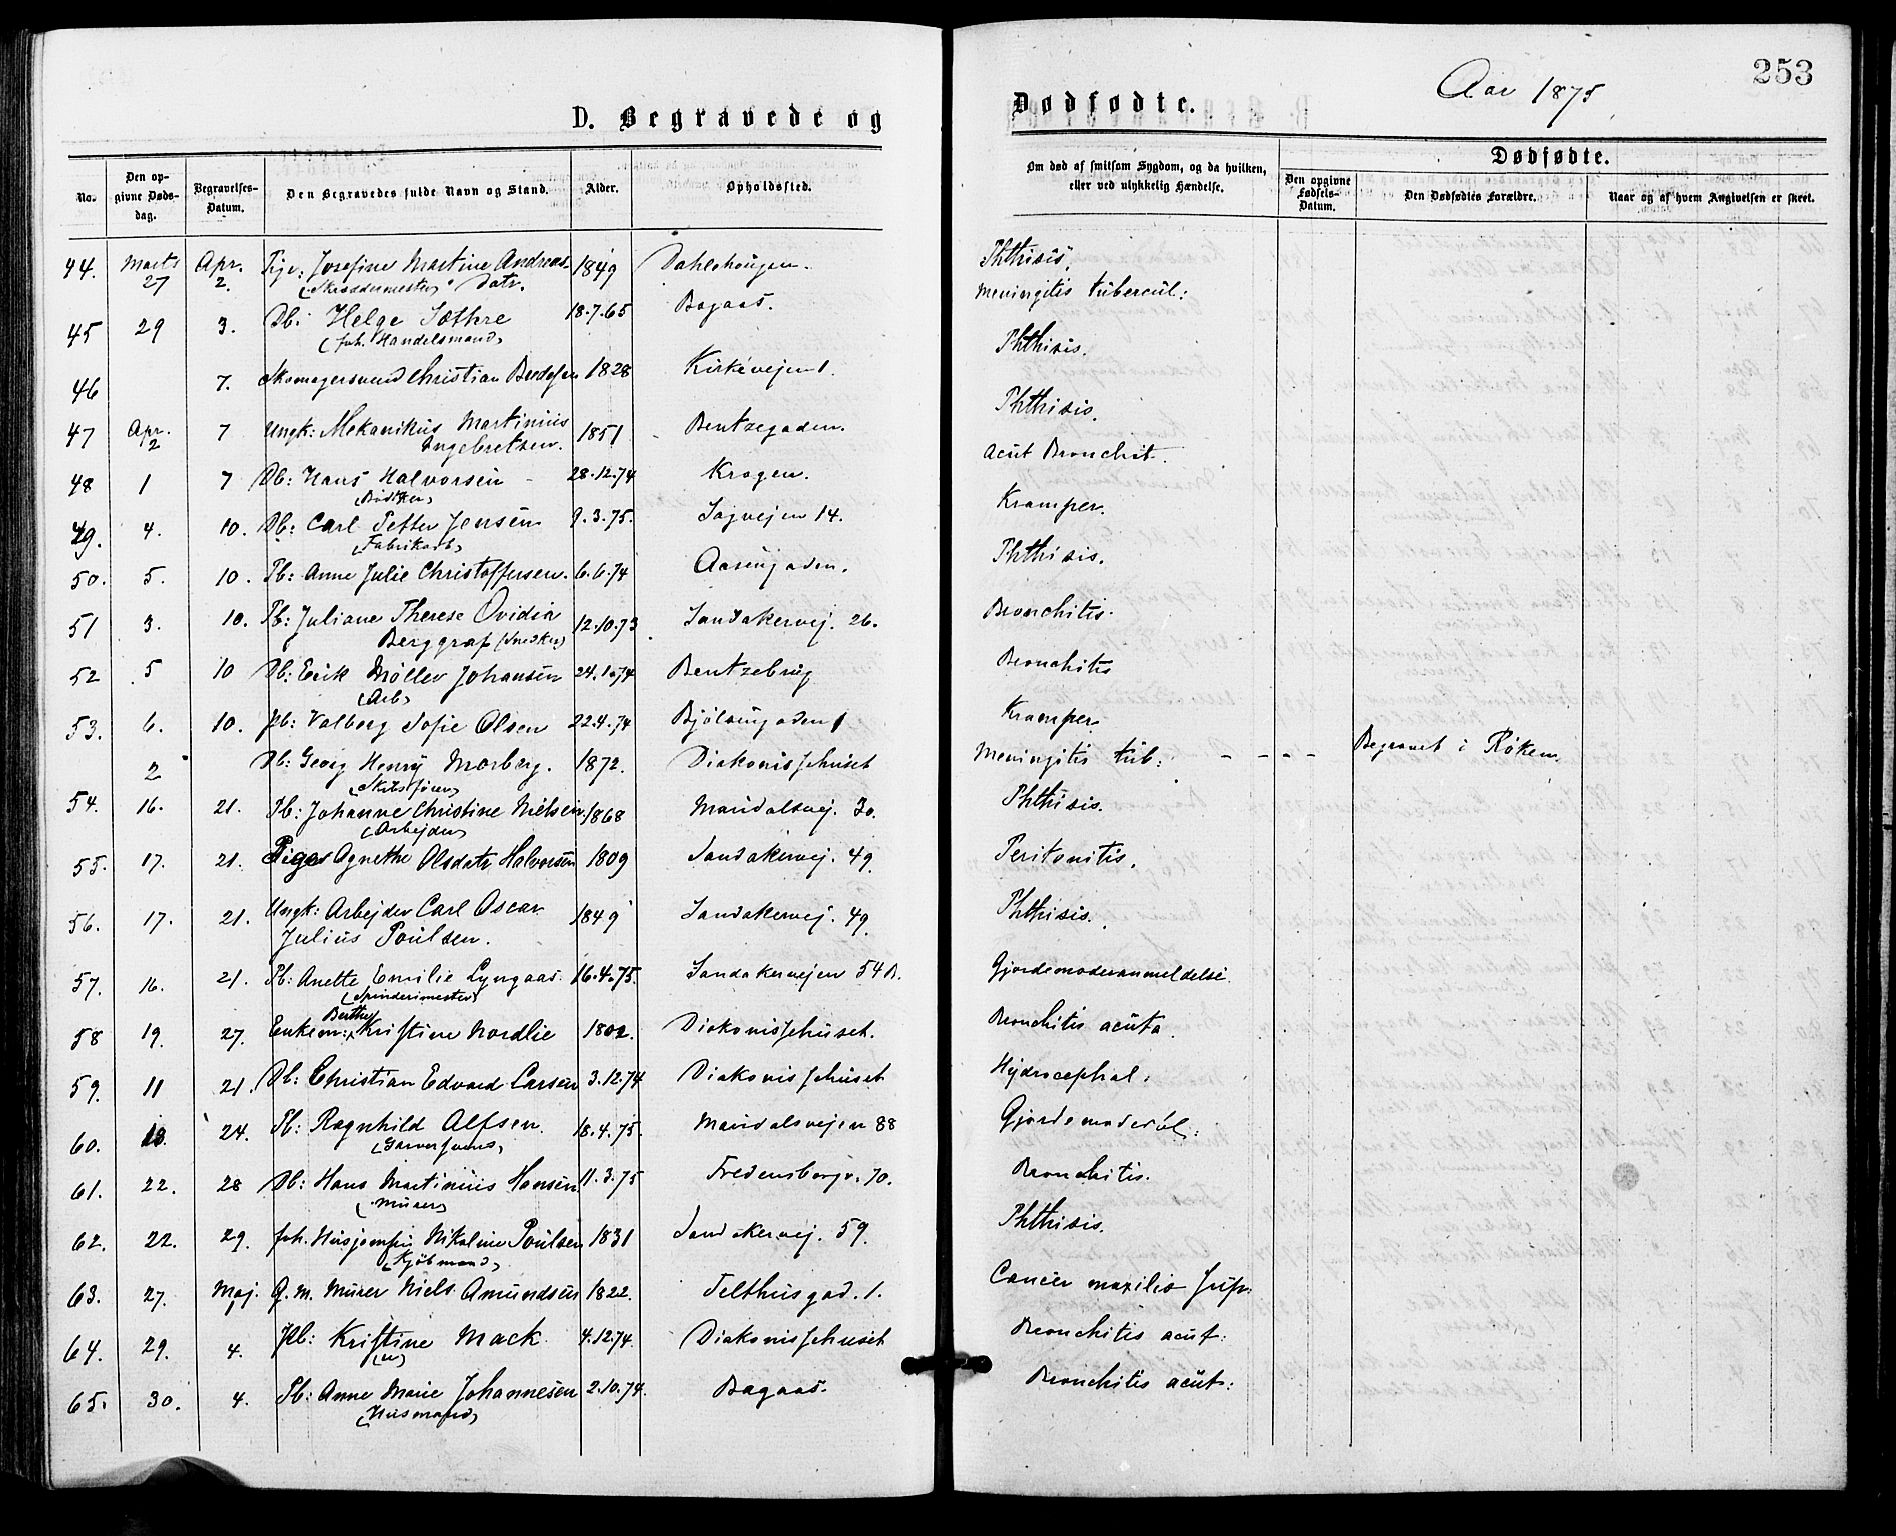 253
Aar 1875
D. Begravede og
Dødfødte.
No.
Den opgivne Dødsdag.
Begravelses-Datum.
Den Begravedes fulde Navn og Stand.
Alder.
Opholdssted.
Om død af smitsom Sygdom, og da hvilken, eller ved ulykkelig Hændelse.
Dødfødte.
Den opgivne Fødsels-Datum.
Den Dødfødtes Forældre.
Naar og af hvem Angivelsen er skeet.
44. Marts 27 Apr. 2. Pige: Josefine Martine Andreas- 1849 Dahlehougen. Phthisis.
(Skræddermester) Datr.
45 29 3. Db: Helge Sæthre 18.7.65 Bagaas. Meningitis tubercul:
(fhv. Handelsmand)
46 7. Skomagersvend Christian Bredesen 1828 Kirkevejen 1. Phthisis.
47 Apr. 2 7 Ungk: Mekanikus Martinius 1851 Bentzegaden. Phthisis.
Ingebretsen.
48 1 7 Db: Hans Halvorsen 28.12.74 Krogen. Acut Bronchit.
(Bødker)
49. 4. 10. Db: Carl Petter Jensen 9.3.75. Sagvejen 14. Kramper.
(Fabrikarb)
50. 5. 10. Pb: Anne Julie Christoffersen. 6.6.74 Aasengaden. Phthisis.
51 3. 10. Pb: Juliane Therese Ovidia 12.10.73 Sandakervej. 26. Bronchitis.
Berggraf (Snedker)
52 5 10 Db: Erik Møller Johansen 24.10.74 Bentzebrug Bronchitis
(Arb)
53. 6. 10. Pb: Valborg Sofie Olsen 22.4.74 Bjølsengaden 1 Kramper.
2 Db: Georg Henry Morberg. 1872. Diakonissehuset Meningitis tub: - - - - Begravet i Røken.
54. 16. 21. Pb: Johanne Christine Nielsen 1868 Maridalsvej. 30. Phthisis.
(Arbejder)
55. 17. 21. Pige Agnethe Olsdatr Halvorsen 1809 Sandakervej. 49. Peritonitis.
56. 17. 21. Ungk: Arbejder Carl Oscar 1849 Sandakervej. 49. Phthisis.
Julius Poulsen.
57. 16. 21. Pb: Anette Emilie Lyngaas. 16.4.75. Sandakervejen 54 B. Gjordemoderanmeldelse
(Spinderimester)
58 19. 27. Enkem: Berthe Kristine Nordlie 1802. Diakonissehuset. Bronchitis acuta.
59. 11 21. Db: Christian Edvard Larsen 3.12.74 Diakonissehuset Hydrocephal.
60. 24. Pb: Ragnhild Alfsen. 18.4.75. Maridalsvejen 88
(Garversvend)
61. 22. 28 Db: Hans Martinius Hansen 11.3.75 Fredensborgv. 70. Bronchitis.
(Murer)
62. 22. 29. fhv. Husjomfru Nikoline Poulsen 1831 Sandakervej. 59. Phthisis.
(Kjøbmand)
63. 27. Maj. 1 G. M. Murer Niels Amundsen 1822. Telthusgad. 1. Cancer maxilis sup:
64. 29. 4. Pb: Kristine Mack 4.12.74. Diakonissehuset Bronchitis acut:
65. 30. 4. Pb: Anne Marie Johannesen 2.10.74. Bagaas. Bronchitis acut:
(Husmand)